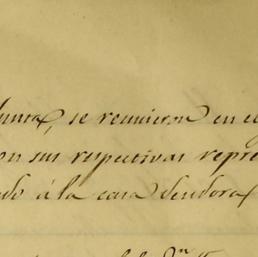 Junta, se reunieron en el
on sus respectivas repre
do á la casa deudora